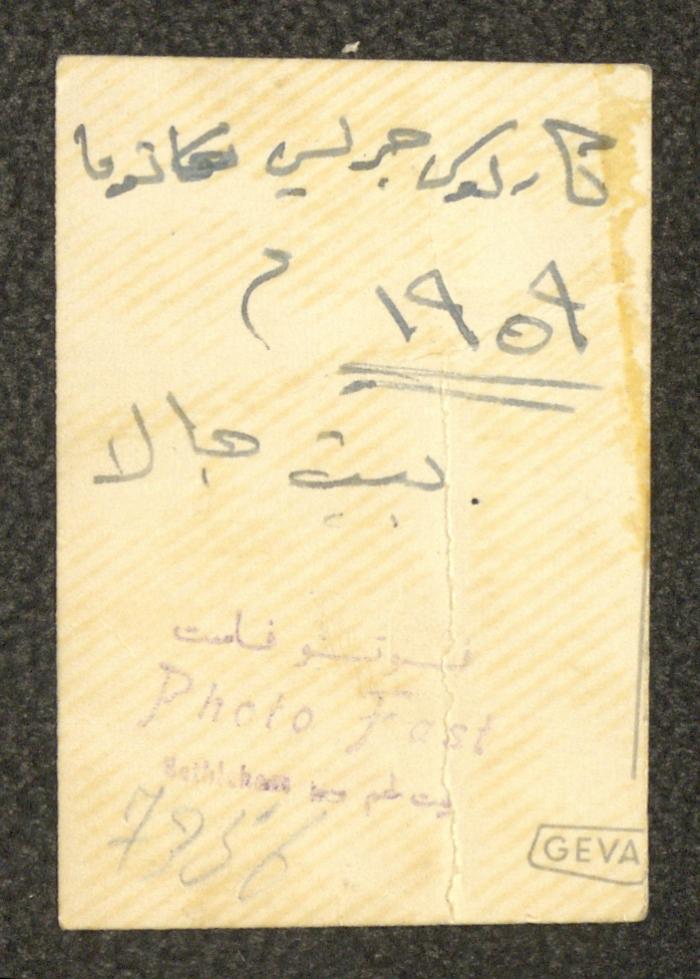 كارلوس جريس
١٩٥٩ م
بيت جالا
فوتو فاست
Photo Fast
Bethlehem بيت لحم
7356
GEVA